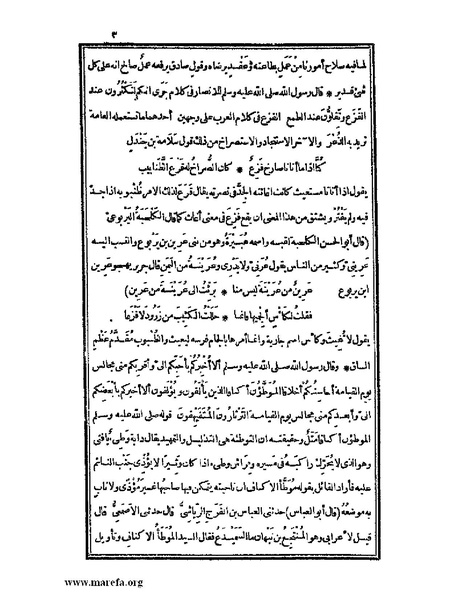 ٣
لما فيه صلاح أمورنا من عمل بطاعته وعقد برضاه وقول صادق يرفعه عمل صالح انه على كل
شئ قدير * قال رسول الله صلى الله عليه وسلم للانصار فى كلام جرى انكم لتكثرون عند
الفزع وتقلون عند الطمع الفزع فى كلام العرب على وجهين أحدهما ما تستعمله العامة
تريد به الذعر والآخر الاستنجاد والاستصراخ من ذلك قول سلامة بن جندل
كنا اذا ما أتانا صارخ فزع * كان الصراخ له قرع الظنابيب
يقول اذا أتانا مستغيث كانت اغاثته الجد فى نصرته يقال قرع لذلك الامر ظنبوبه اذا جد
فيه ولم يفتر ويشتق من هذا المعنى ان يقع فزع فى معنى أغاث كما قال الكلحبة اليربوعى
(قال أبو الحسن الكلحبة لقبه واسمه هبيرة وهو من بنى عرين بن يربوع والنسب اليه
عرينى وكثير من الناس يقول عرنى ولا يدرى وعرينة من اليمن قال جرير يهجو عرين
ابن يربوع عرين من عرينة ليس منا * برئت الى عرينة من عرين)
فقلت لكأس ألجميها فانما * حللت الكثيب من زرود لأفزعا
يقول لأغيث وكأس اسم جارية وانما أمرها بالجام فرسه ليغيث والظنبوب مقدم عظم
الساق * وقال رسول الله صلى الله عليه وسلم ألا أخبركم بأحبكم الى وأقربكم منى مجالس
يوم القيامة أحاسنكم أخلاقا الموطؤن أكنافا الذين يألفون ويؤلفون ألا أخبركم بأبغضكم
الى وأبعدكم منى مجالس يوم القيامة الثرثارون المتفيهقون قوله صلى الله عليه وسلم
الموطؤن أكنافا مثل وحقيقته ان التوطئة هى التذليل والتمهيد يقال دابة وطىء يا فتى
وهو الذى لا يحرك راكبه فى مسيره وفراش وطىء اذا كان وثيرا لا يؤذى جنب النائم
عليه فأراد القائل بقوله موطأ الاكناف ان ناحيته يتمكن فيها صاحبها غير مؤذى ولا ناب
به موضعه (قال أبو العباس) حدثنى العباس بن الفرج الرياشى قال حدثنى الاصمعى قال
قيل لأعرابى وهو المنتجع بن نبهان ما السميدع فقال السيد الموطأ الاكناف وتأويل
www.marefa.org